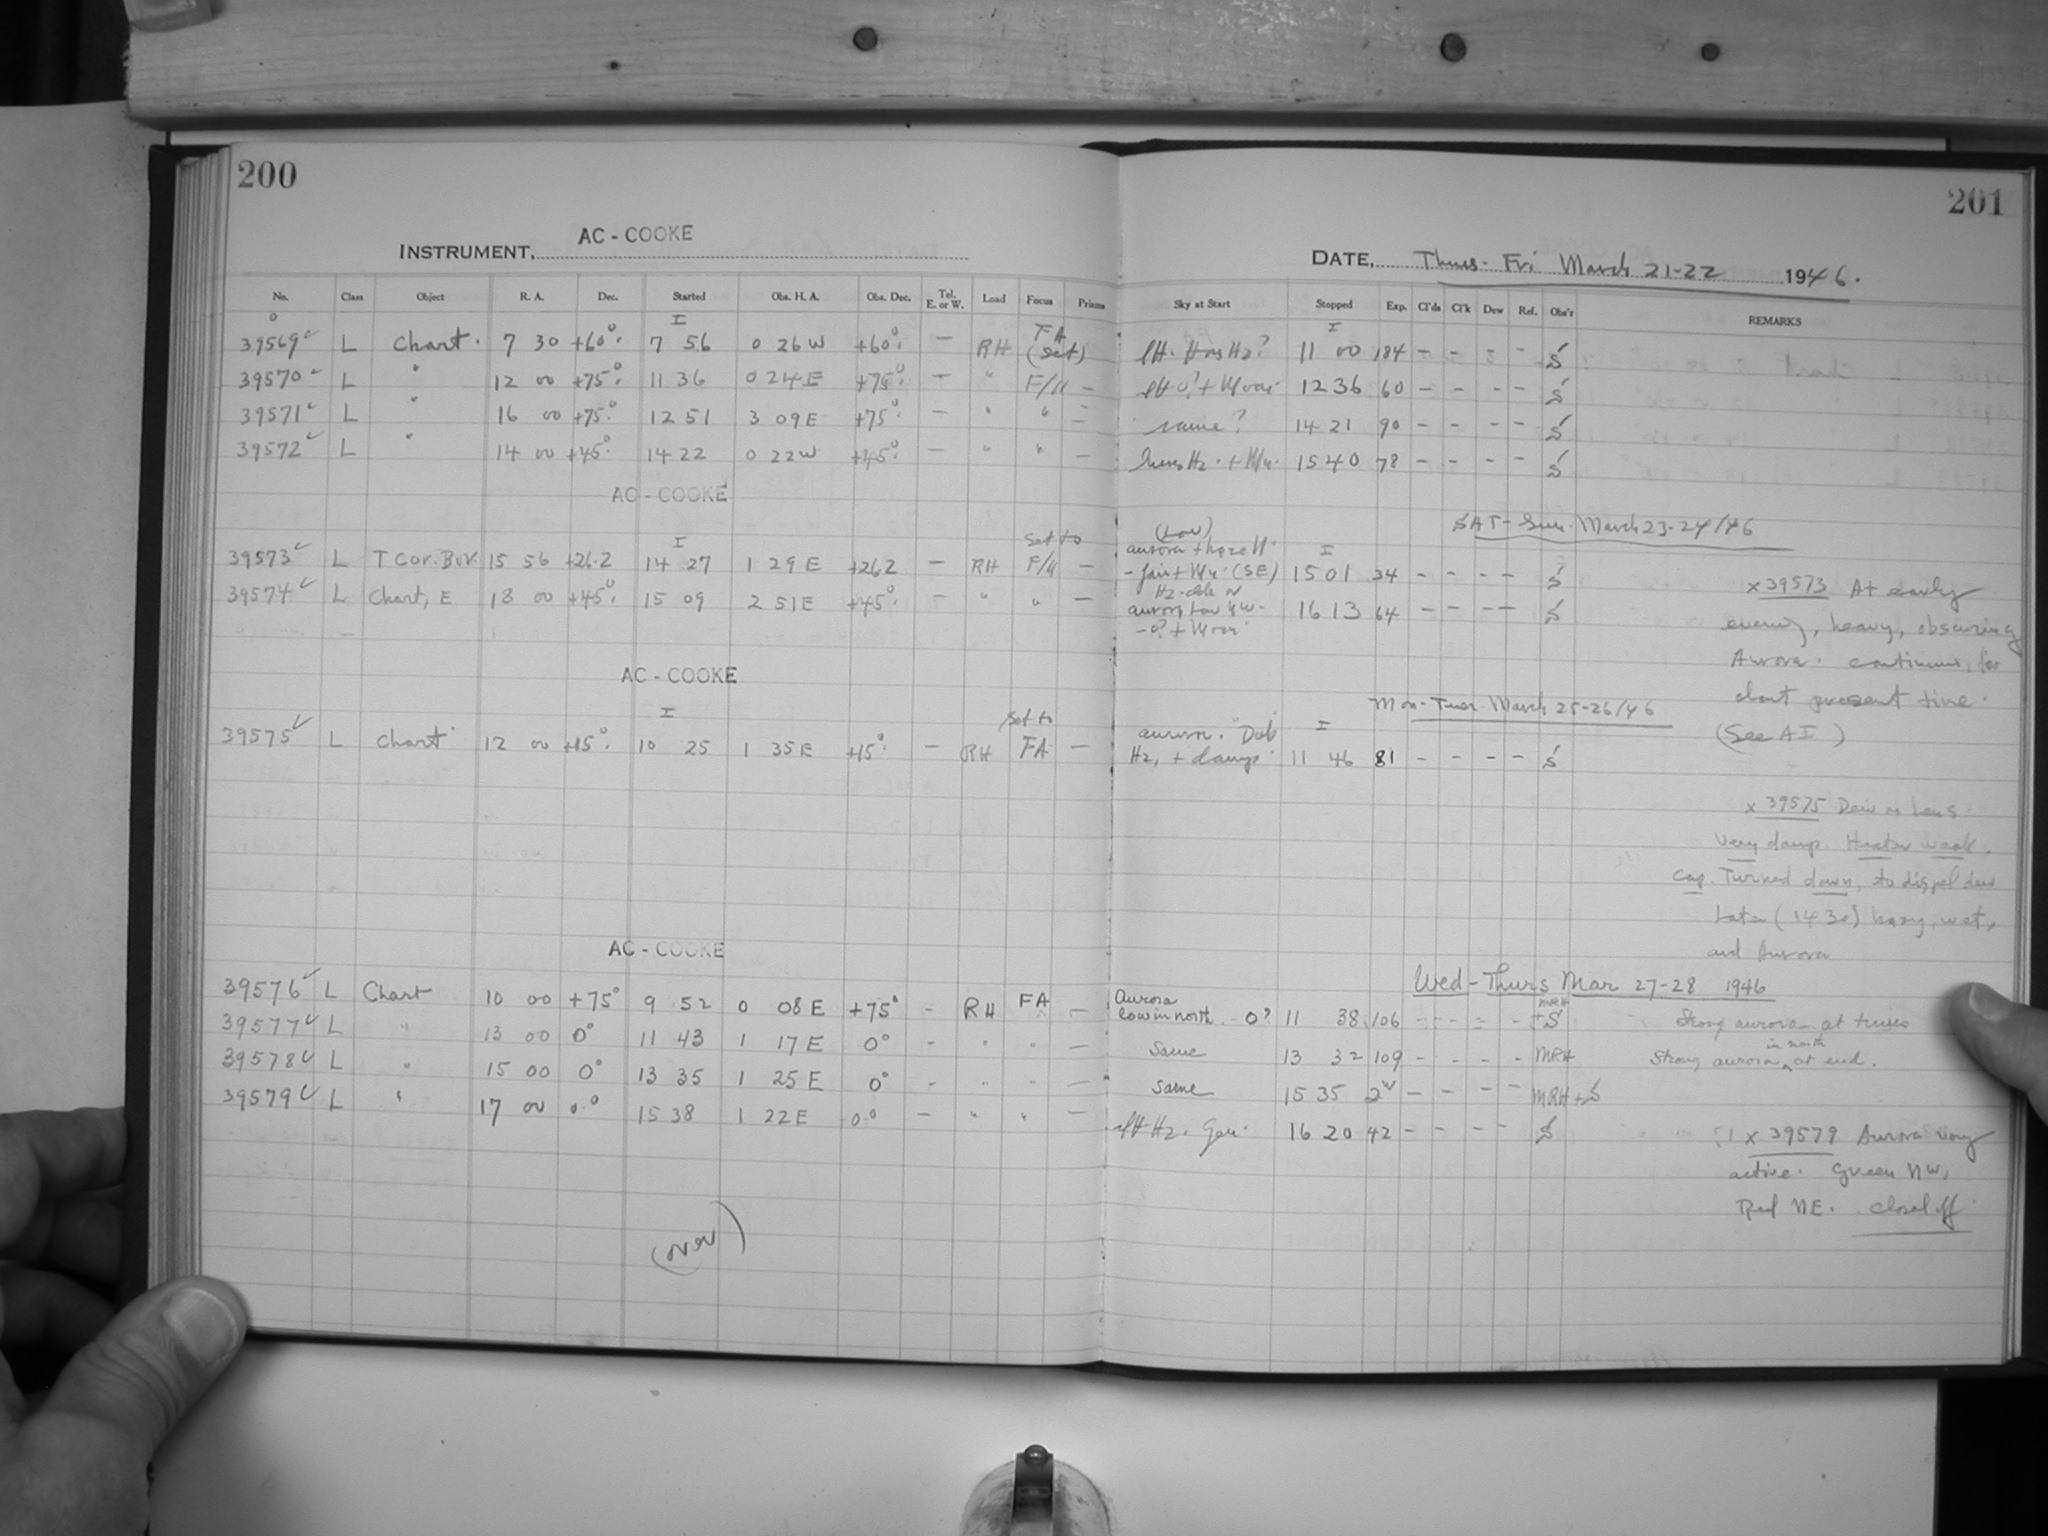 200
INSTRUMENT, AC - COOKE
No. Class Object R. A. Dec. Started Obs. H. A. Obs. Dec. Tel. E. or W. Load Focus Prisms
39569 ✓ L Chart. 7 30 +60°. 7 56 0 26 W +60°. — RH FA (set)
39570 ✓ L " 12 00 +75°. 11 36 0 24 E +75°. — " F/11 —
39571 ✓ L " 16 00 +75°. 12 51 3 09 E +75°. — " " —
39572 ✓ L " 14 00 +45°. 14 22 0 22 W +45°. — " " —
AC - COOKE
39573 ✓ L T Cor. Bor. 15 56 +26.2 14 27 1 29 E +26.2 — RH set to F/11 —
39574 ✓ L Chart, E 18 00 +45°. 15 09 2 51 E +45°. — " " —
AC - COOKE
39575 ✓ L Chart 12 00 +15°. 10 25 1 35 E +15°. — RH set to FA —
AC - COOKE
39576 ✓ L Chart 10 00 +75° 9 52 0 08 E +75° - RH FA —
39577 ✓ L " 13 00 0° 11 43 1 17 E 0° - " " —
39578 ✓ L " 15 00 0° 13 35 1 25 E 0° - " " —
39579 ✓ L " 17 00 0.° 15 38 1 22 E 0.° — " " —
(over)
201
DATE, Thurs - Fri March 21-22 1946.
Sky at Start Stopped Exp. Cl'ds Cl'k Dew Ref. Obs'r REMARKS
Hz? 11 00 184 - - - - S
+ Moon 12 36 60 - - - - S
same? 14 21 90 - - - - S
Hz. + 15 40 78 - - - - S
SAT - Sun. March 23-24/46
(Low)
aurora + haze
(SE) 15 01 34 - - - - S
aurora Low NW - 16 13 64 - - - - S
- 0? + Moon
x 39573 At early
evening, heavy, obscuring
Aurora. continuing, for
about present time.
(See AI)
Mon - Tues. March 25-26/46
aurora.
Hz, + damp 11 46 81 - - - - S
x 39575 Dew on Lens
Very damp. Heater weak.
Cap. Turned down, to dispel dew
Later (14 30) hazy, wet,
and Aurora
Wed - Thurs Mar 27-28 1946
Aurora
low in north - 0? 11 38 106 - - - - MRH + S Strong aurora at times
Same 13 32 109 - - - - MRH Strong aurora in north at end.
Same 15 35 - - - - MRH + S
Hz. Gen. 16 20 42 - - - - S
x 39579 Aurora very
active. Green NW,
Red NE. Closed off